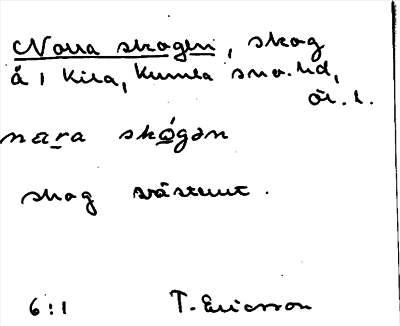 Norra skogen, skog
å 1 Kila, Kumla sn o. hd,
ör. l.
nara skógən
skog västerut.
6:1 T. Ericsson